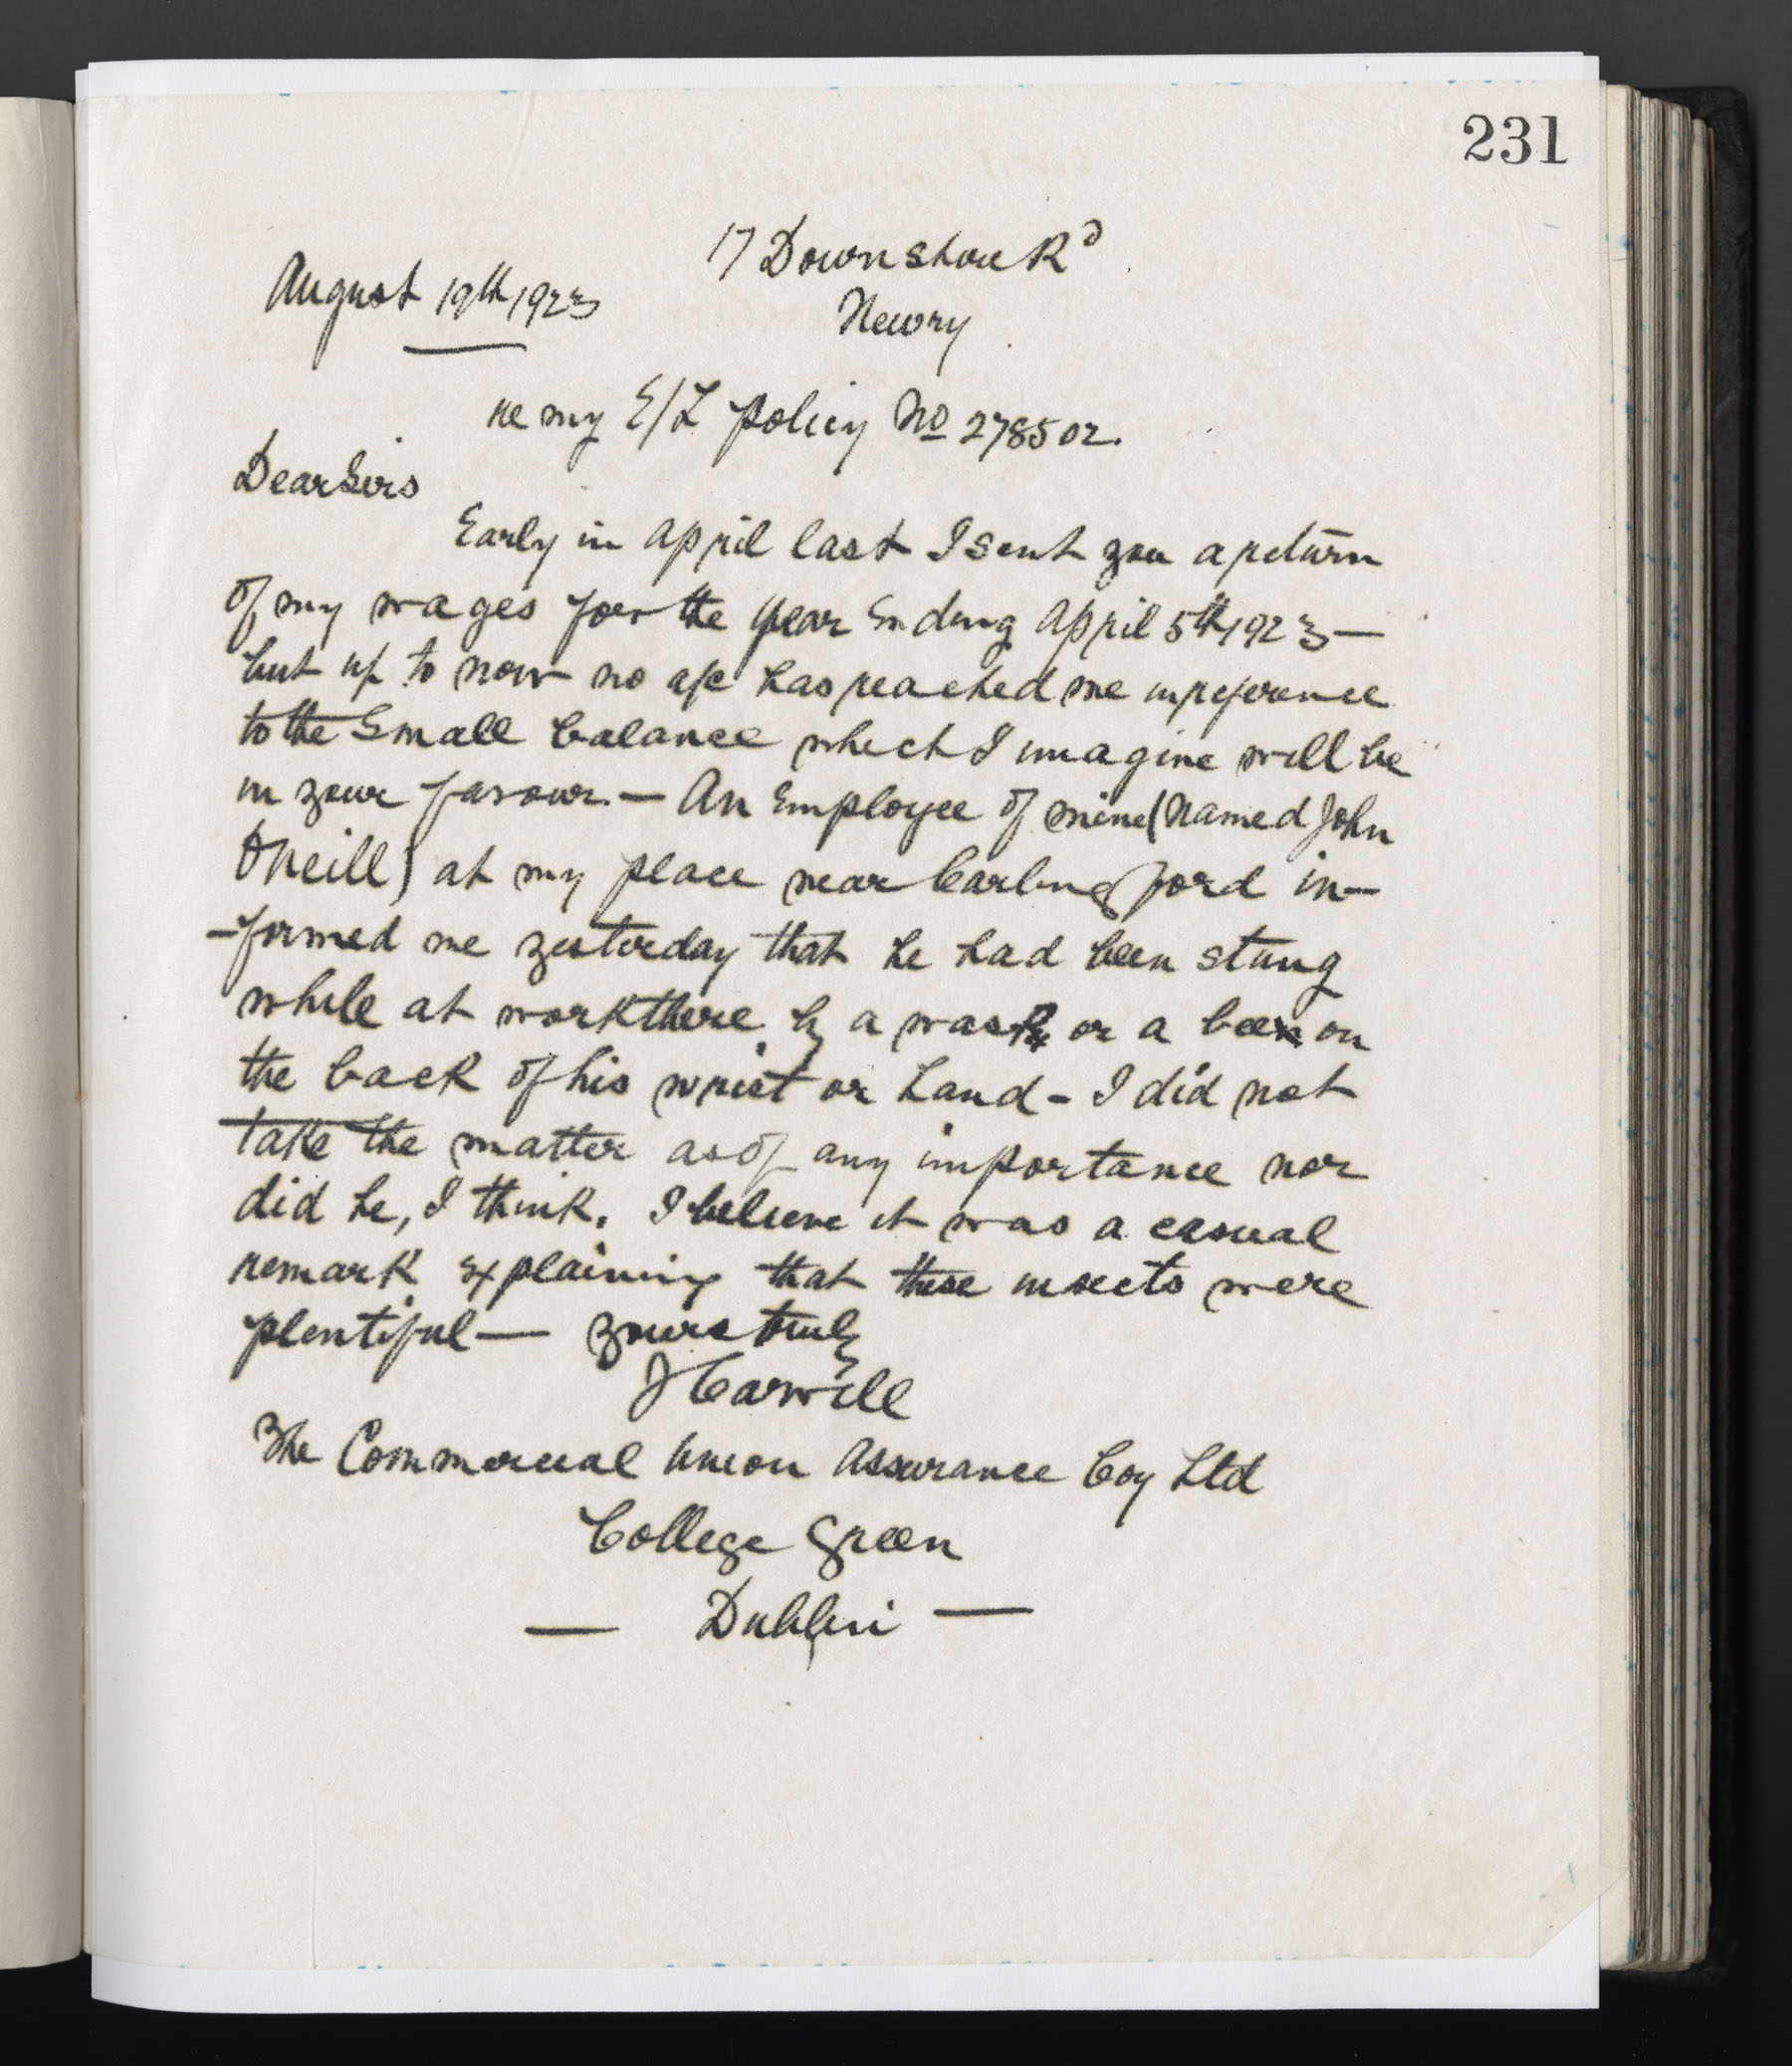 231
17 Downshire Rd
August 19th 1923
Newry
re my E/L policy No 278502.
Dear Sirs
Early in April last I sent you a return
of my wages for the year Ending April 5th 1923 —
but up to now no a/c has reached me in reference
to the Small balance which I imagine will be
in your favour. — An Employee of mine (Named John
O'Neill) at my place near Carlingford in-
-formed me yesterday that he had been stung
while at work there by a wasp or a bee on
the back of his wrist or hand - I did not
take the matter as of any importance nor
did he, I think. I believe it was a casual
remark explaining that these insects were
plentiful — Yours truly
J Carvill
The Commercial Union Assurance Coy Ltd
College Green
— Dublin —